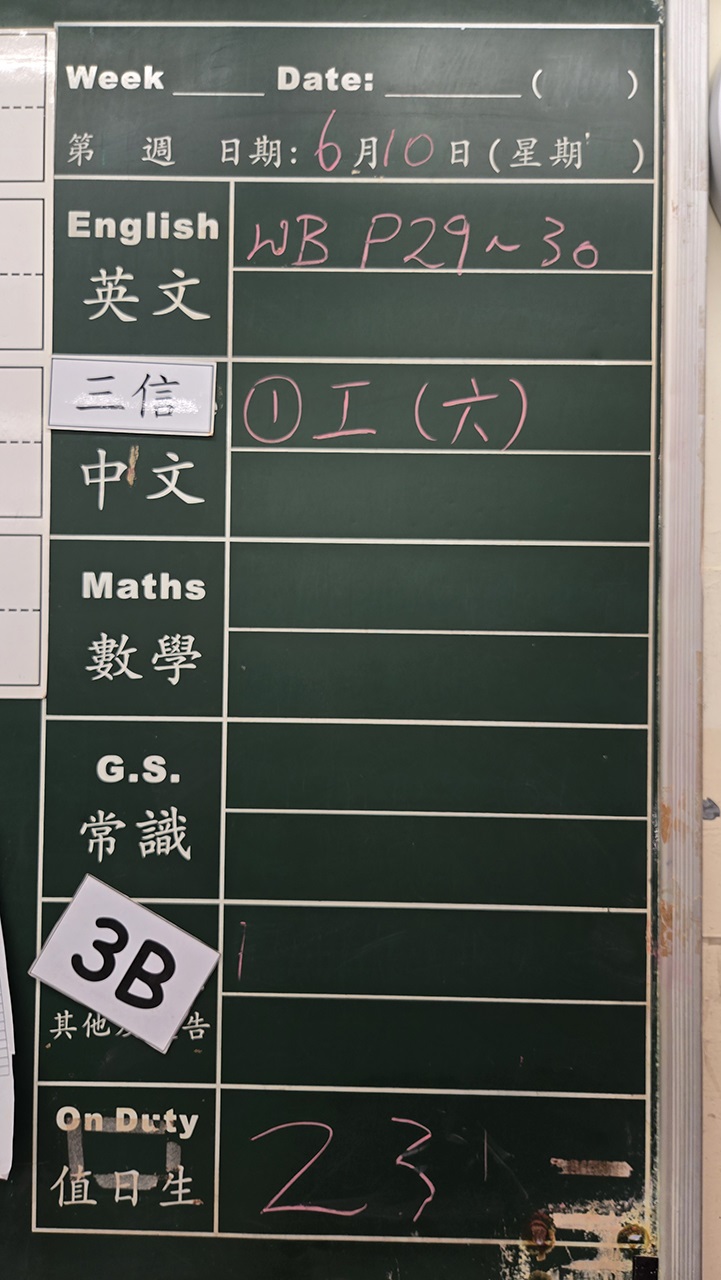 Week ____ Date: ______ ( )
第 週 日期: 6月10日 (星期 )
English
英文
WB P29~30
三信
中文
①工(六)
Maths
數學
G.S.
常識
3B
其他 告
On Duty
值日生
23